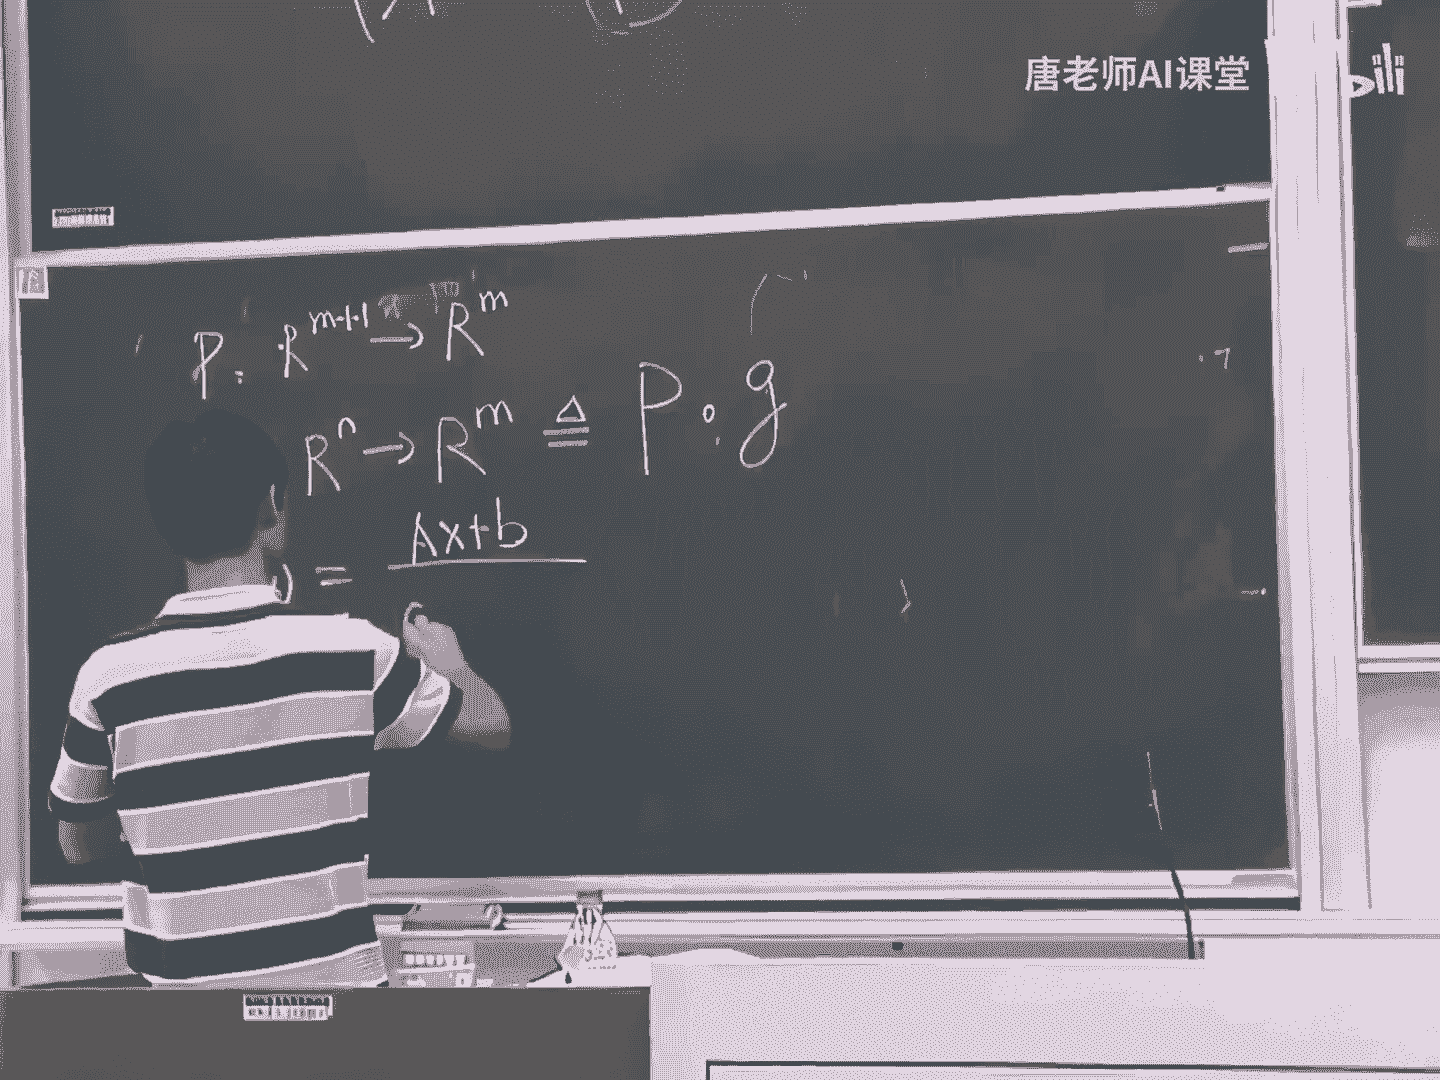 唐老师AI课堂
P: R^{m+1} → R^m
R^n → R^m ≜ P∘g
) = Ax+b